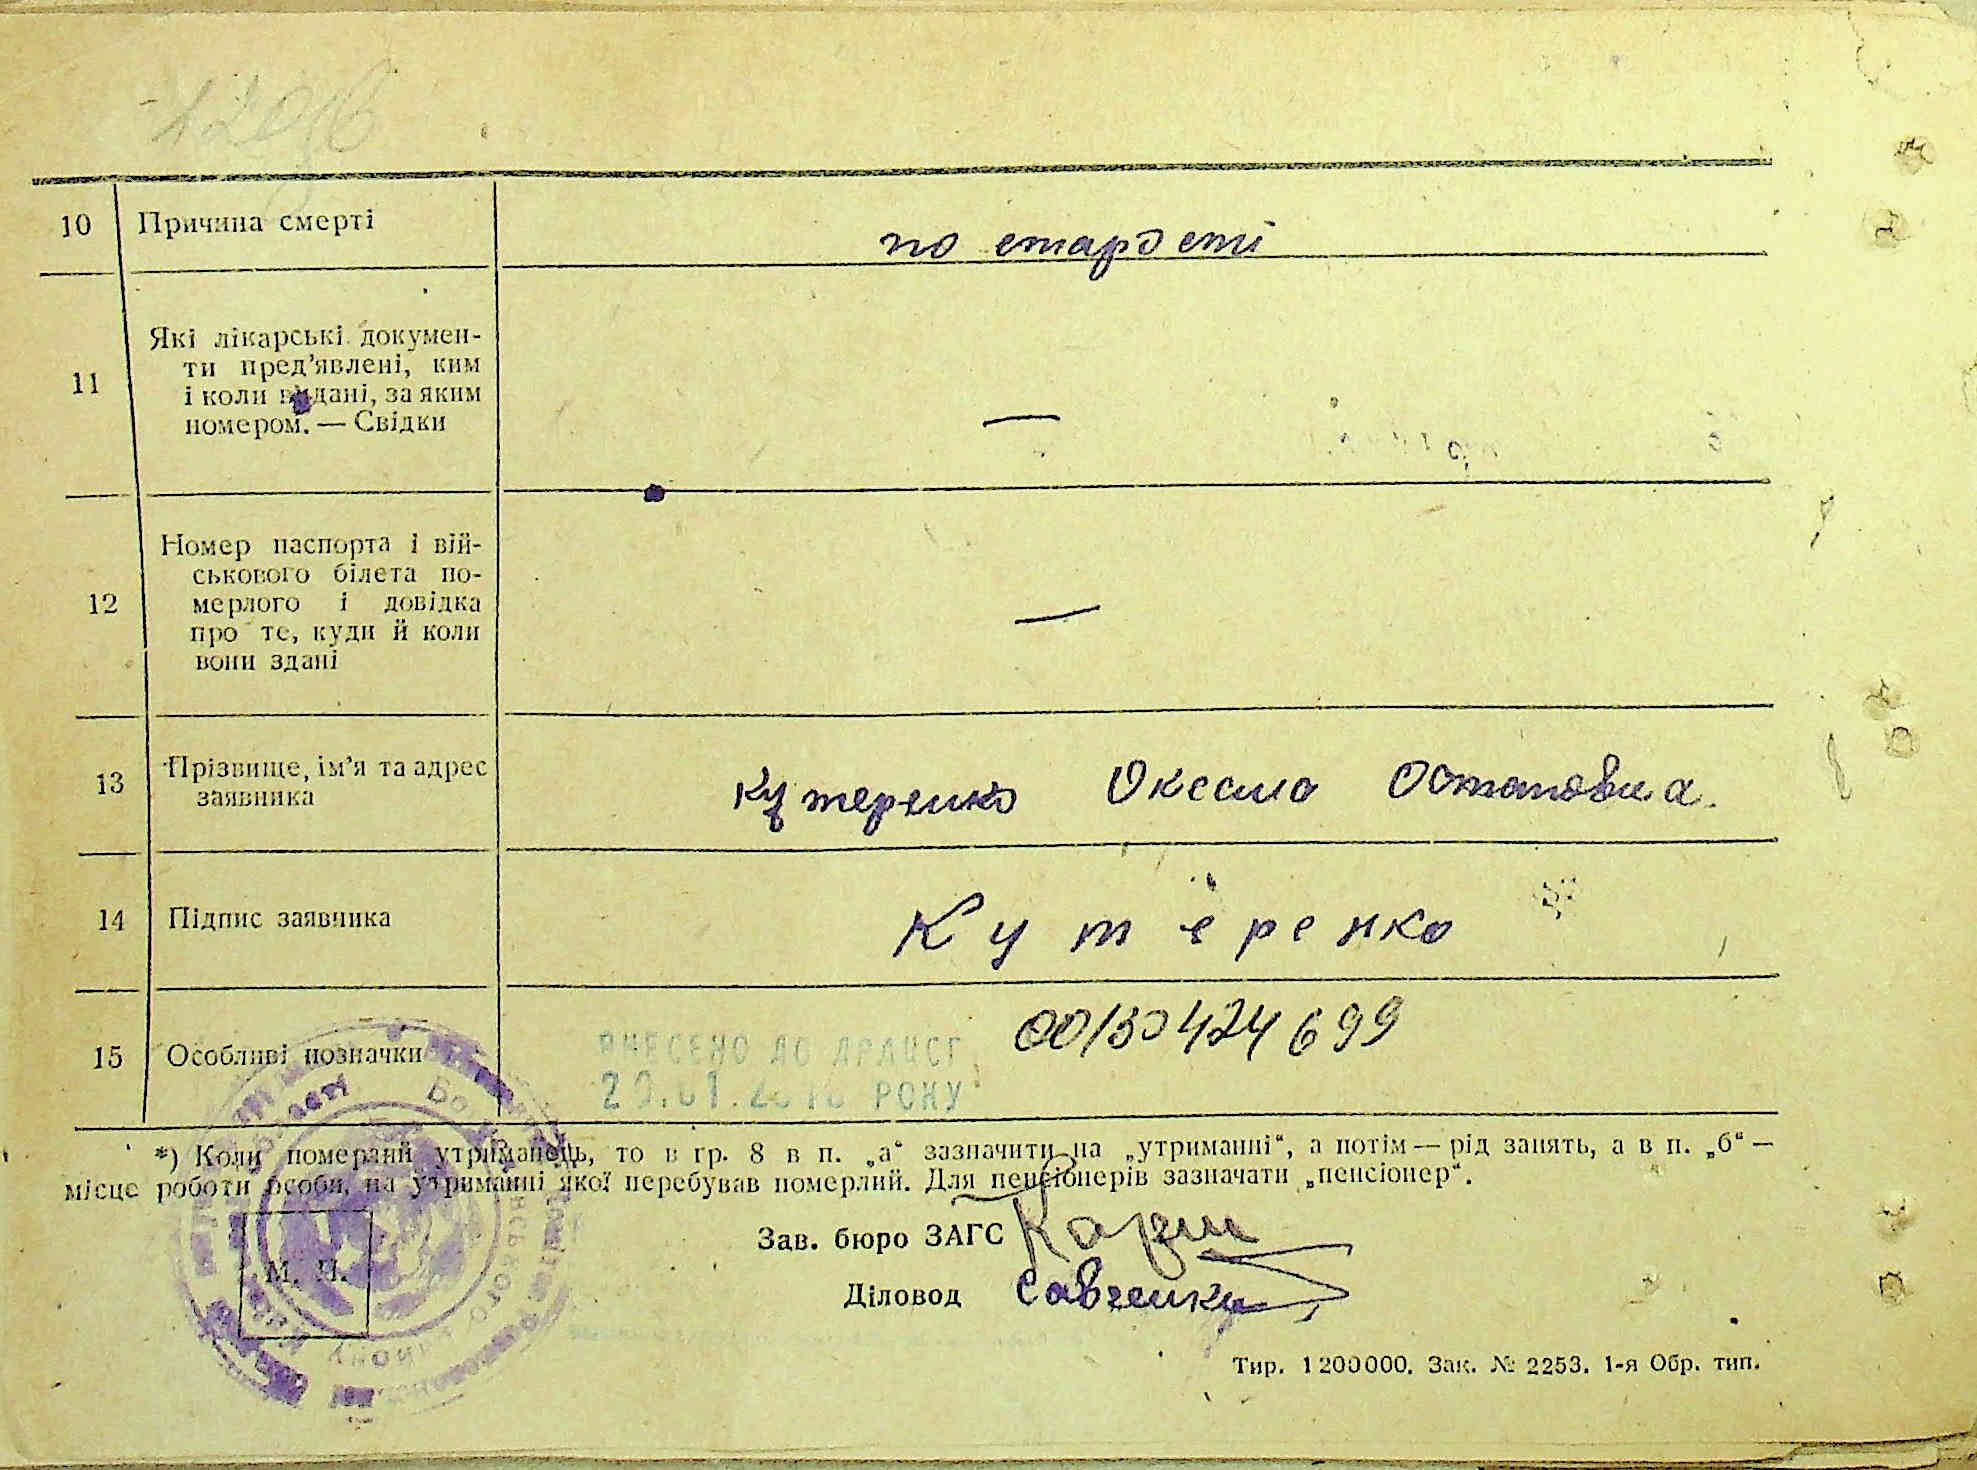 10 Причина смерті по старості
11 Які лікарські документи
ти пред'явлені, ким
і коли видані, за яким
номером. — Свідки —
12 Номер паспорта і вій-
ськового білета по-
мерлого і довідка
про те, куди й коли
вони здані —
13 Прізвище, ім'я та адрес
заявника Кутеренко Оксана Остаповна.
14 Підпис заявника Кутеренко
15 Особливі позначки 00130424699
ВНЕСЕНО ДО ДРАЦСГ
РОКУ
*) Коли померлий утриманець, то в гр. 8 в п. „а“ зазначити на „утриманні“, а потім — рід занять, а в п. „б“ —
місце роботи особи, на утриманні якої перебував померлий. Для пенсіонерів зазначати „пенсіонер“.
Зав. бюро ЗАГС
Діловод Савченко
М. П.
Тир. 1200000. Зак. № 2253. 1-я Обр. тип.